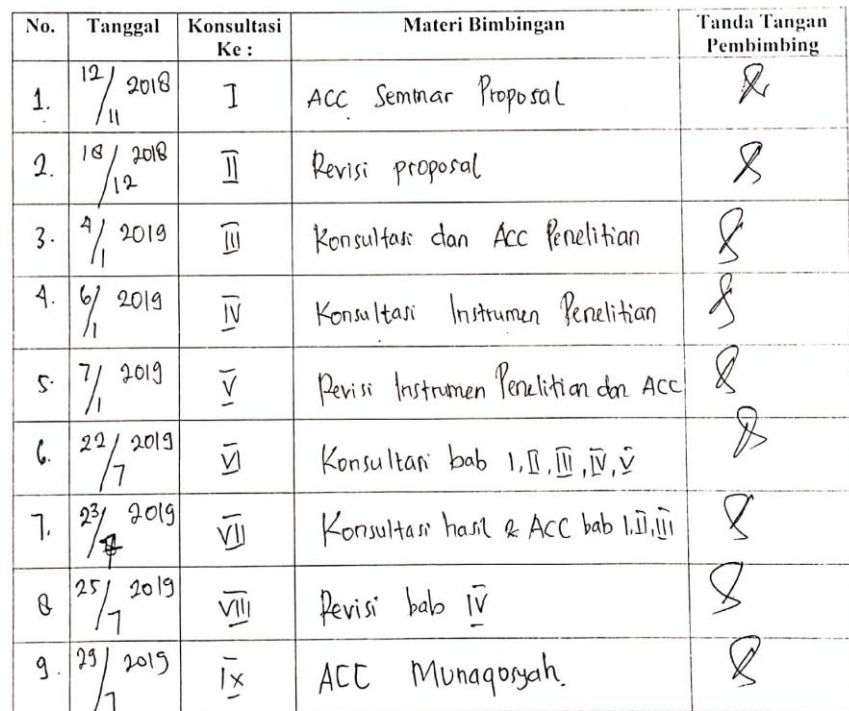 No. Tanggal Konsultasi Ke : Materi Bimbingan Tanda Tangan Pembimbing
1. 12/11 2018 I ACC Seminar Proposal
2. 18/12 2018 II Revisi proposal
3. 4/1 2019 III Konsultasi dan Acc Penelitian
4. 6/1 2019 IV Konsultasi Instrumen Penelitian
5. 7/1 2019 V Revisi Instrumen Penelitian dan ACC
6. 22/7 2019 VI Konsultasi bab I, II, III, IV, V
7. 23/7 2019 VII Konsultasi hasil & ACC bab I, II, III
8 25/7 2019 VIII Revisi bab IV
9. 29/7 2019 IX ACC Munaqosyah.